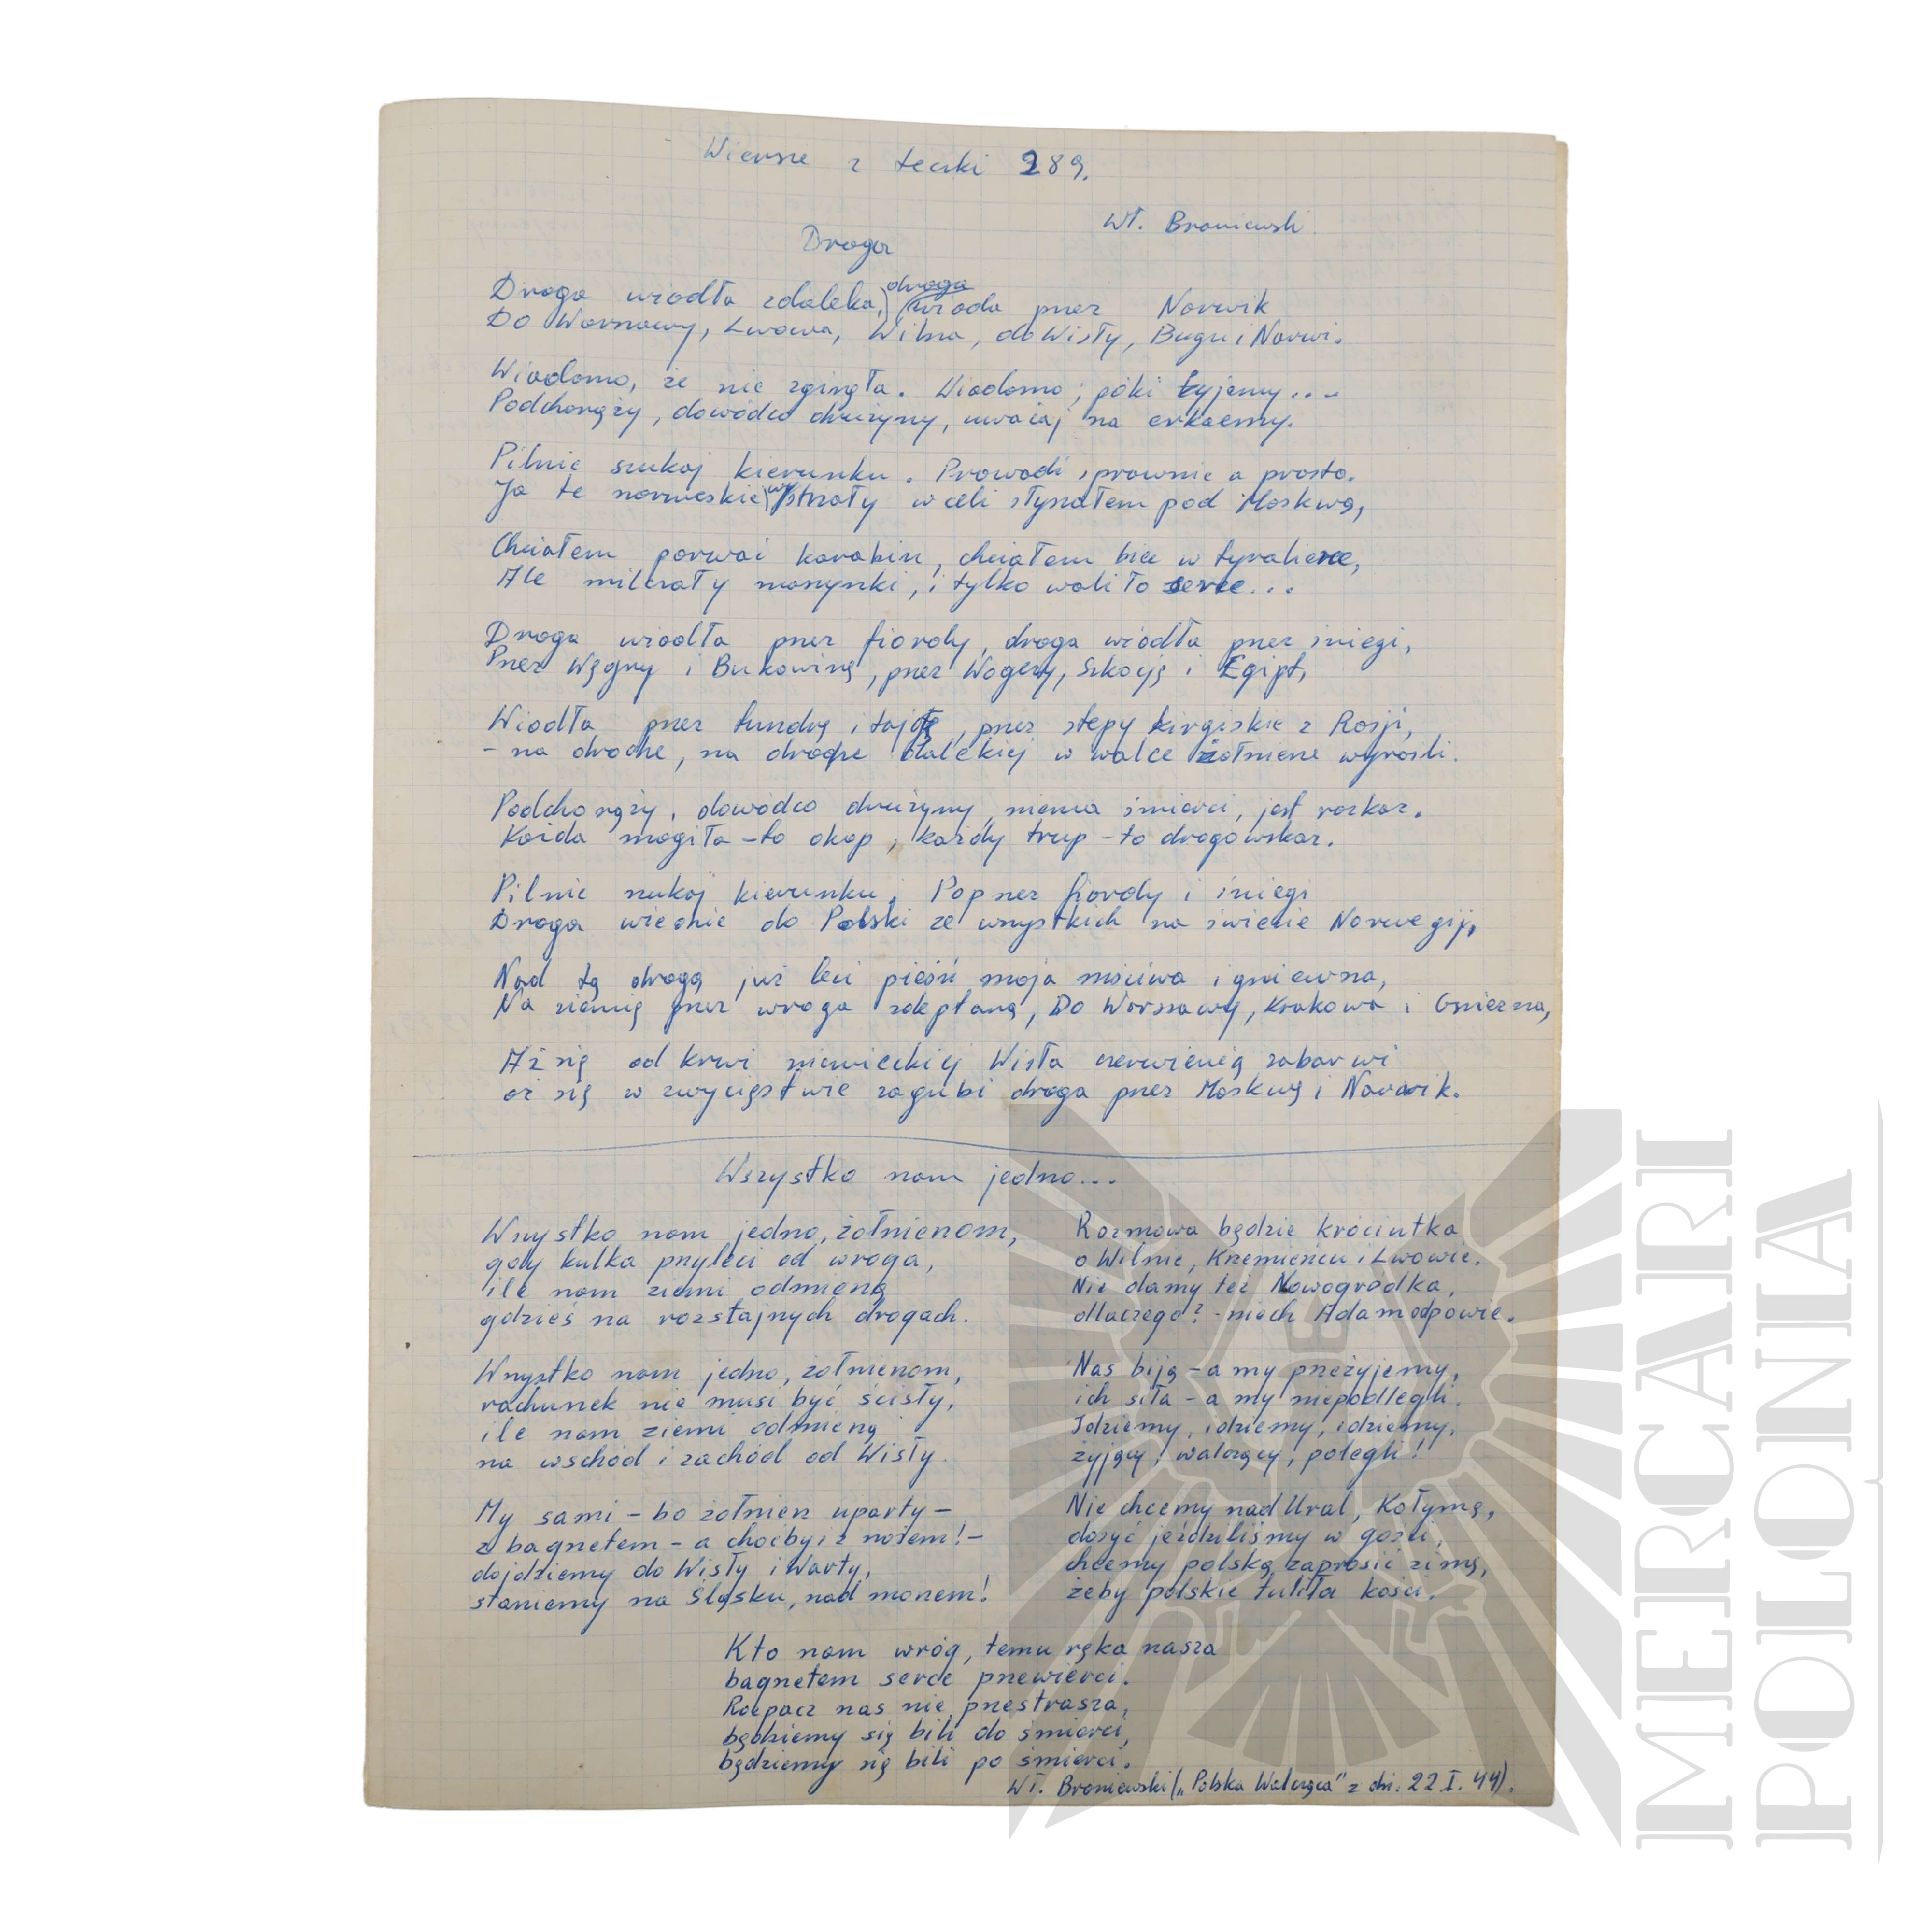 Wiersze z teczki 289.
Wł. Broniewski
Droga
Droga wiodła zdaleka, droga wioda przez Narwik
Do Warszawy, Lwowa, Wilna, do Wisły, Bugu i Narwi.
Wiadomo, że nie zginęła. Wiadomo; póki żyjemy...
Podchorąży, dowódco drużyny, uważaj na erkaemy.
Pilnie szukaj kierunku. Prowadź sprawnie a prosto.
Ja te norweskie wystrzały w celi słyszałem pod Moskwą,
Chciałem porwać karabin, chciałem biec w tyralierce,
Ale milczały maszynki, i tylko waliło serce...
Droga wiodła przez fiordy, droga wiodła przez śniegi,
Przez Węgry i Bukowinę, przez Wogezy, Szkocję i Egipt,
Wiodła przez tundrę i tajgę, przez stepy kirgiskie z Rosji,
- na drodze, na drodze dalekiej w walce żołnierze wyrośli.
Podchorąży, dowódco drużyny, niema śmierci, jest rozkaz.
Każda mogiła - to okop, każdy trup - to drogowskaz.
Pilnie szukaj kierunku. Poprzez fiordy i śniegi
Droga wiedzie do Polski ze wszystkich na świecie Norwegij,
Nad tą drogą już leci pieśń moja mściwa i gniewna,
Na ziemię przez wroga zdeptaną, Do Warszawy, Krakowa i Gniezna,
Aż się od krwi niemieckiej Wisła czerwienią zabarwi
aż się w zwycięstwie zagubi droga przez Moskwę i Narwik.
Wszystko nam jedno...
Wszystko nam jedno, żołnierzom,
gdy kulka przyleci od wroga,
ile nam ziemi odmierzą
gdzieś na rozstajnych drogach.
Wszystko nam jedno, żołnierzom,
rachunek nie musi być ścisły,
ile nam ziemi odmierzą
na wschód i zachód od Wisły.
My sami - bo żołnierz uparty -
z bagnetem - a choćby i z nożem! -
dojdziemy do Wisły i Warty,
staniemy na Śląsku, nad morzem!
Rozmowa będzie króciutka
o Wilnie, Krzemieńcu i Lwowie.
Nie damy też Nowogródka,
dlaczego? - niech Adam odpowie.
Nas biją - a my przeżyjemy,
ich siła - a my niepodlegli.
Idziemy, idziemy, idziemy,
żyjący, walczący, polegli!
Nie chcemy nad Ural, Kołymę,
dosyć jeździliśmy w gości,
chcemy polską zaprosić zimę,
żeby polskie tuliła kości.
Kto nam wróg, temu ręka nasza
bagnetem serce przewierci.
Rozpacz nas nie przestrasza,
będziemy się bili do śmierci,
będziemy się bili po śmierci.
Wł. Broniewski („Polska Walcząca" z dn. 22 I. 44).
MERCARI
POLONIA